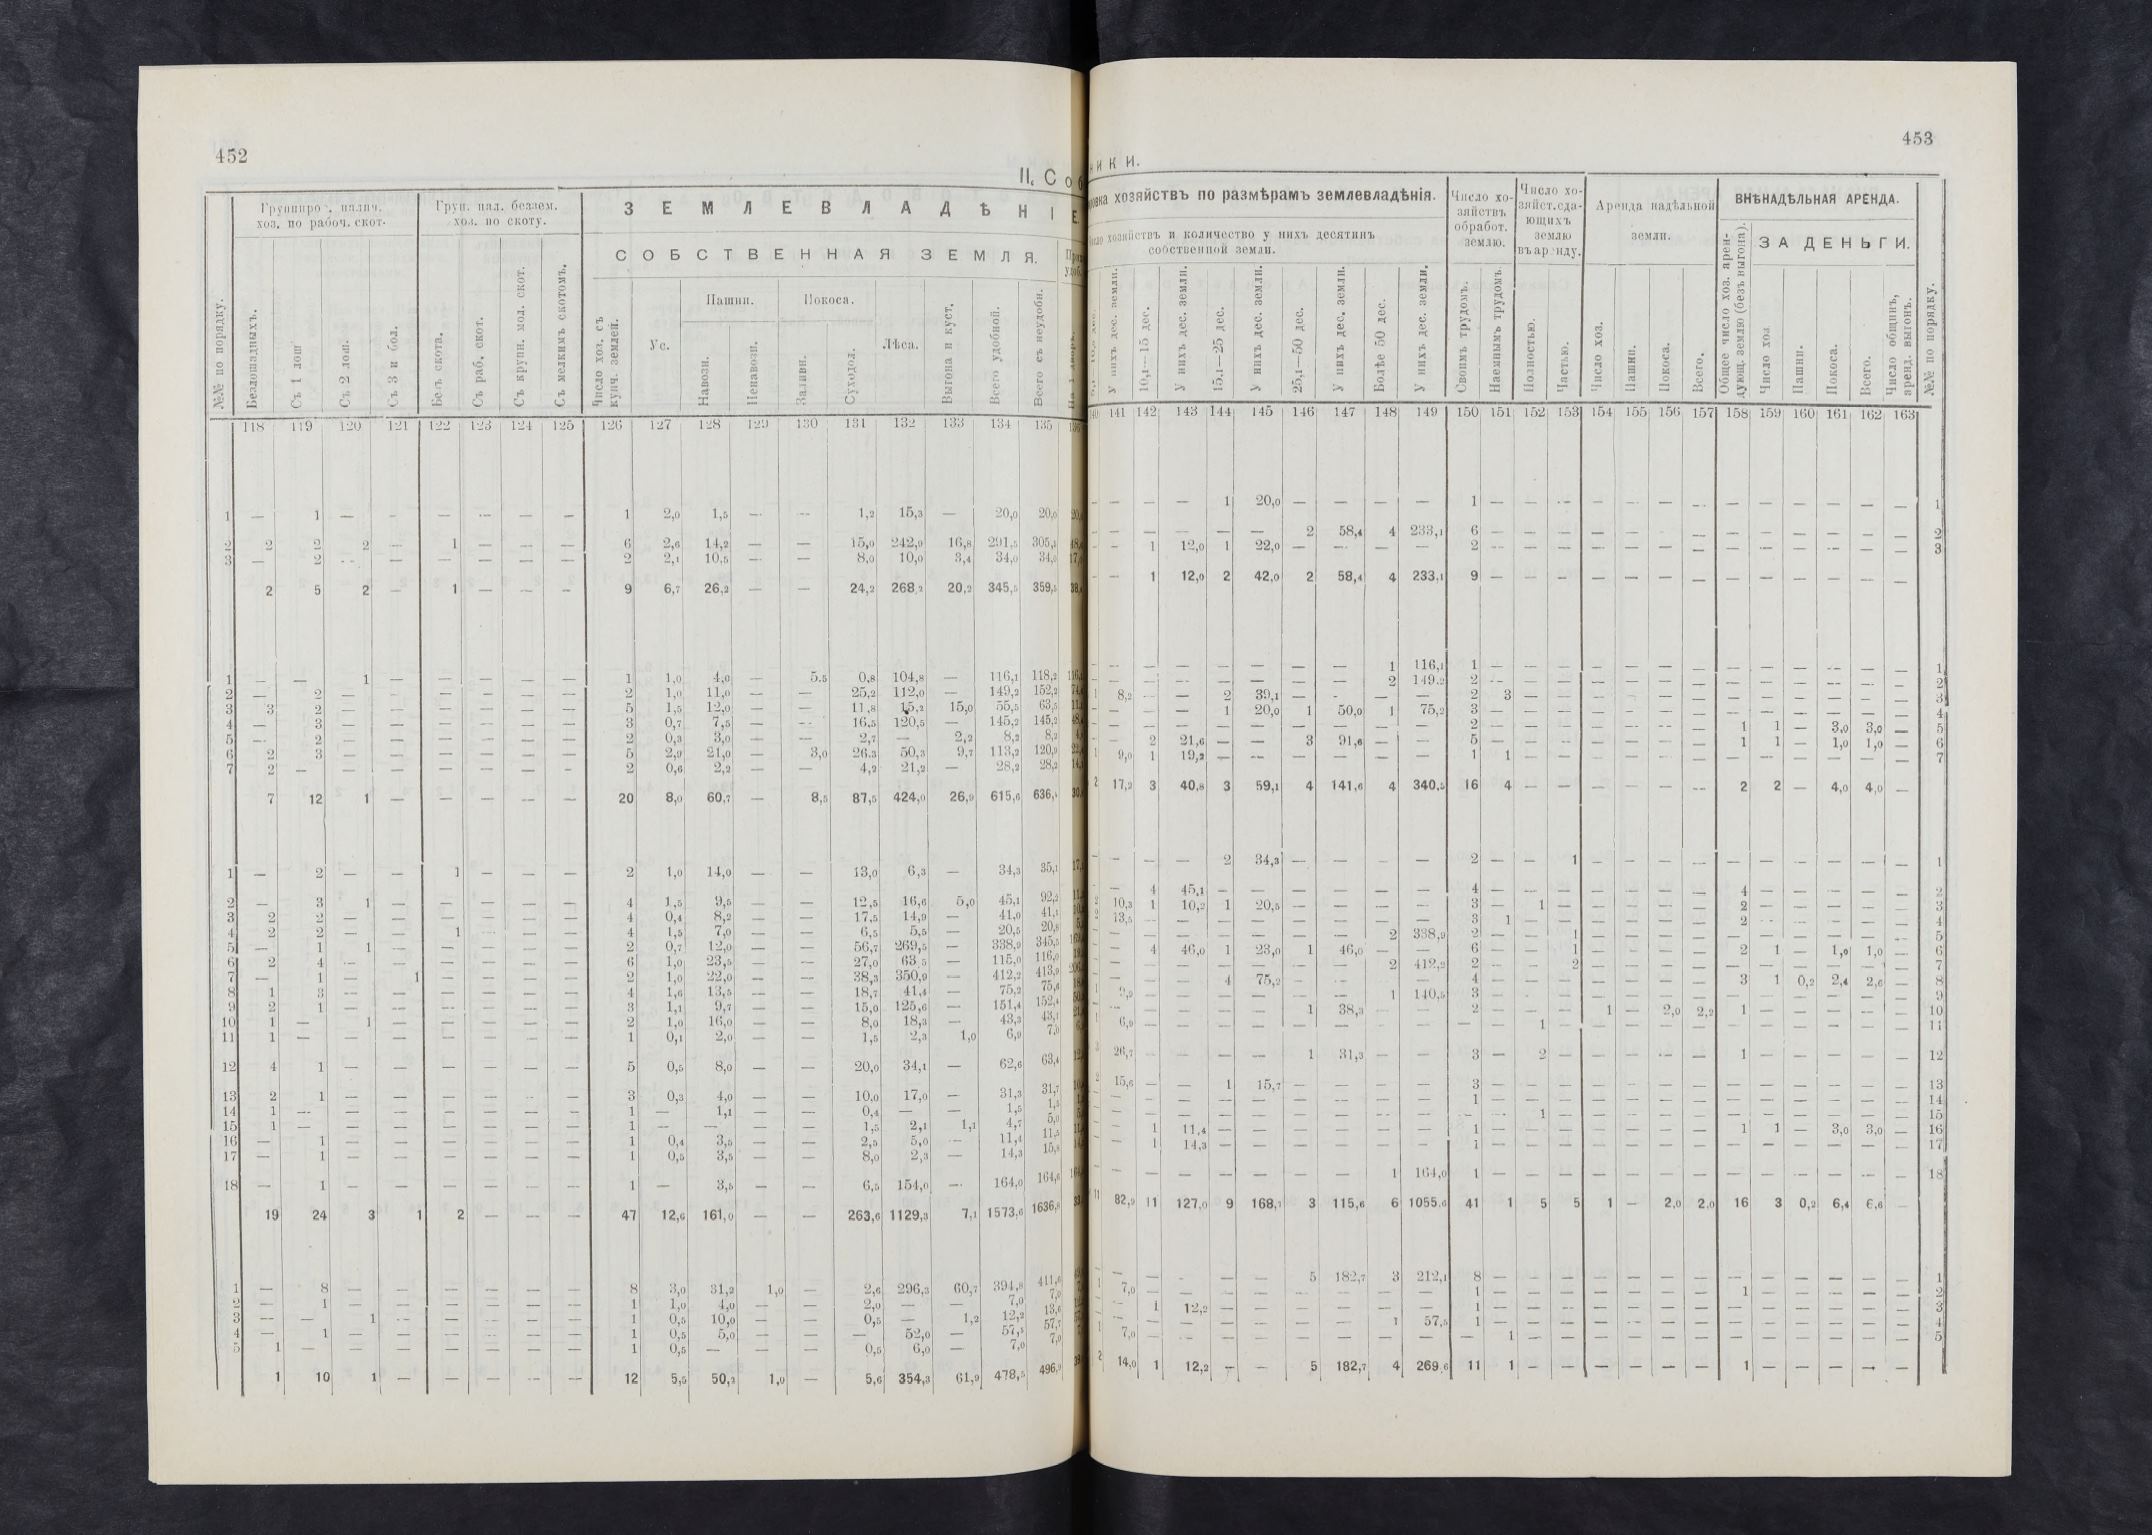 452
II. Соб
Группиро . налич. хоз. по рабоч. скот.
Груп. нал. беззем. хоз. по скоту.
ЗЕМЛЕВЛАДѢНІЕ.
СОБСТВЕННАЯ ЗЕМЛЯ.
Пашни. Покоса.
№№ по порядку. Безлошадныхъ. Съ 1 лош Съ 2 лош. Съ 3 и бол. Безъ скота. Съ раб. скот. Съ крупн. мол. скот. Съ мелкимъ скотомъ. Число хоз. съ купч. землей. Ус. Навозн. Ненавозн. Заливн. Суходол. Лѣса. Выгона и куст. Всего удобной. Всего съ неудобн.
118 119 120 121 122 123 124 125 126 127 128 129 130 131 132 133 134 135
1 — 1 — — — — — — 1 2,0 1,5 — — 1,2 15,3 — 20,0 20,0
2 2 2 2 — 1 — — — 6 2,6 14,2 — — 15,0 242,9 16,8 291,5 305,1
3 — 2 — — — — — — 2 2,1 10,5 — — 8,0 10,0 3,4 34,0 34,0
2 5 2 — 1 — — — 9 6,7 26,2 — — 24,2 268,2 20,2 345,5 359,5
1 — — 1 — — — — — 1 1,0 4,0 — 5.5 0,8 104,8 — 116,1 118,2
2 — 2 — — — — — — 2 1,0 11,0 — — 25,2 112,0 — 149,2 152,2
3 3 2 — — — — — — 5 1,5 12,0 — — 11,8 15,2 15,0 55,5 63,5
4 — 3 — — — — — — 3 0,7 7,5 — — 16,5 120,5 — 145,2 145,2
5 — 2 — — — — — — 2 0,3 3,0 — — 2,7 — 2,2 8,2 8,2
6 2 3 — — — — — — 5 2,9 21,0 — 3,0 26.3 50,3 9,7 113,2 120,9
7 2 — — — — — — — 2 0,6 2,2 — — 4,2 21,2 — 28,2 28,2
7 12 1 — — — — — 20 8,0 60,7 — 8,5 87,5 424,0 26,9 615,6 636,4
1 — 2 — — 1 — — — 2 1,0 14,0 — — 13,0 6,3 — 34,3 35,1
2 — 3 1 — — — — — 4 1,5 9,5 — — 12,5 16,6 5,0 45,1 92,2
3 2 2 — — — — — — 4 0,4 8,2 — — 17,5 14,9 — 41,0 41,1
4 2 2 — — 1 — — — 4 1,5 7,0 — — 6,5 5,5 — 20,5 20,8
5 — 1 1 — — — — — 2 0,7 12,0 — — 56,7 269,5 — 338,9 345,5
6 2 4 — — — — — — 6 1,0 23,5 — — 27,0 63 5 — 115,0 116,0
7 — 1 — 1 — — — — 2 1,0 22,0 — — 38,3 350,9 — 412,2 413,9
8 1 3 — — — — — — 4 1,6 13,5 — — 18,7 41,4 — 75,2 75,6
9 2 1 — — — — — — 3 1,1 9,7 — — 15,0 125,6 — 151,4 152,4
10 1 — 1 — — — — — 2 1,0 16,0 — — 8,0 18,3 — 43,3 43,1
11 1 — — — — — — — 1 0,1 2,0 — — 1,5 2,3 1,0 6,9 7,0
12 4 1 — — — — — — 5 0,5 8,0 — — 20,0 34,1 — 62,6 63,4
13 2 1 — — — — — — 3 0,3 4,0 — — 10,0 17,0 — 31,3 31,7
14 1 — — — — — — — 1 — 1,1 — — 0,4 — — 1,5 1,5
15 1 — — — — — — — 1 — — — — 1,5 2,1 1,1 4,7 5,0
16 — 1 — — — — — — 1 0,4 3,5 — — 2,5 5,0 — 11,4 11,5
17 — 1 — — — — — — 1 0,5 3,5 — — 8,0 2,3 — 14,3 15,8
18 — 1 — — — — — — 1 — 3,5 — — 6,5 154,0 — 164,0 164,6
19 24 3 1 2 — — — 47 12,6 161,0 — — 263,6 1129,3 7,1 1573,6 1636,8
1 — 8 — — — — — — 8 3,0 31,2 1,0 — 2,6 296,3 60,7 394,8 411,6
2 — 1 — — — — — — 1 1,0 4,0 — — 2,0 — — 7,0 7,0
3 — — 1 — — — — — 1 0,5 10,0 — — 0,5 — 1,2 12,2 13,6
4 — 1 — — — — — — 1 0,5 5,0 — — — 52,0 — 57,5 57,7
5 1 — — — — — — — 1 0,5 — — — 0,5 6,0 — 7,0 7,0
1 10 1 — — — — — 12 5,5 50,2 1,0 — 5,6 354,3 61,9 478,5 496,9
453
ники.
ровка хозяйствъ по размѣрамъ землевладѣнія.
Число хозяйствъ и количество у нихъ десятинъ собственной земли.
Число хозяйствъ обработ. землю.
Число хозяйст. сдающихъ землю въ ар нду.
Аренда надѣльной земли.
ВНѢНАДѢЛЬНАЯ АРЕНДА.
ЗА ДЕНЬГИ.
У нихъ дес. земли. 10,1—15 дес. У нихъ дес. земли. 15,1—25 дес. У нихъ дес. земли. 25,1—50 дес. У нихъ дес. земли. Болѣе 50 дес. У нихъ дес. земли. Своимъ трудомъ. Наемнымъ трудомъ. Полностью. Частью. Число хоз. Пашни. Покоса. Всего. Общее число хоз. арендующ. землю (безъ выгона). Число хоз Пашни. Покоса. Всего. Число общинъ, аренд. выгонъ. №№ по порядку.
141 142 143 144 145 146 147 148 149 150 151 152 153 154 155 156 157 158 159 160 161 162 163
— — — 1 20,0 — — — — 1 — — — — — — — — — — — — — 1
— — — — — 2 58,4 4 233,1 6 — — — — — — — — — — — — — 2
— 1 12,0 1 22,0 — — — — 2 — — — — — — — — — — — — — 3
— 1 12,0 2 42,0 2 58,4 4 233,1 9 — — — — — — — — — — — — —
— — — — — — — 1 116,1 1 — — — — — — — — — — — — — 1
— — — — — — — 2 149,2 2 — — — — — — — — — — — — — 2
1 8,2 — — 2 39,1 — — — — 2 3 — — — — — — — — — — — — 3
— — — 1 20,0 1 50,0 1 75,2 3 — — — — — — — — — — — — — 4
— — — — — — — — — 2 — — — — — — — 1 1 — 3,0 3,0 — 5
— 2 21,6 — — 3 91,6 — — 5 — — — — — — — 1 1 — 1,0 1,0 — 6
1 9,0 1 19,2 — — — — — — 1 1 — — — — — — — — — — — — 7
2 17,2 3 40,8 3 59,1 4 141,6 4 340,5 16 4 — — — — — — 2 2 — 4,0 4,0 —
— — — 2 34,3 — — — — 2 — — 1 — — — — — — — — — — 1
— 4 45,1 — — — — — — 4 — — — — — — — 4 — — — — — 2
2 10,3 1 10,2 1 20,5 — — — — 3 — 1 — — — — — 2 — — — — — 3
2 13,5 — — — — — — — — 3 1 — — — — — — 2 — — — — — 4
— — — — — — — 2 338,9 2 — — 1 — — — — — — — — — — 5
— 4 46,0 1 23,0 1 46,0 — — 6 — — 1 — — — — 2 1 — 1,0 1,0 — 6
— — — — — — — 2 412,2 2 — — 2 — — — — — — — — — — 7
— — — 4 75,2 — — — — 4 — — — — — — — 3 1 0,2 2,4 2,6 — 8
1 9,9 — — — — — — 1 140,5 3 — — — — — — — — — — — — — 9
— — — — — 1 38,3 — — 2 — — — 1 — 2,0 2,2 1 — — — — — 10
1 6,9 — — — — — — — — — — 1 — — — — — — — — — — — 11
3 26,7 — — — — 1 31,3 — — 3 — 2 — — — — — 1 — — — — — 12
2 15,6 — — 1 15,7 — — — — 3 — — — — — — — — — — — — — 13
— — — — — — — — — 1 — — — — — — — — — — — — — 14
— — — — — — — — — — — 1 — — — — — — — — — — — 15
— 1 11,4 — — — — — — 1 — — — — — — — 1 1 — 3,0 3,0 — 16
— 1 14,3 — — — — — — 1 — — — — — — — — — — — — — 17
— — — — — — — 1 164,0 1 — — — — — — — — — — — — — 18
11 82,9 11 127,0 9 168,7 3 115,6 6 1055,6 41 1 5 5 1 — 2,0 2,0 16 3 0,2 6,4 6,6 —
— — — — — 5 182,7 3 212,1 8 — — — — — — — — — — — — — 1
1 7,0 — — — — — — — — 1 — — — — — — — 1 — — — — — 2
— 1 12,2 — — — — — — 1 — — — — — — — — — — — — — 3
— — — — — — — 1 57,5 1 — — — — — — — — — — — — — 4
1 7,0 — — — — — — — — — 1 — — — — — — — — — — — — 5
2 14,0 1 12,2 — — 5 182,7 4 269,6 11 1 — — — — — — 1 — — — — —